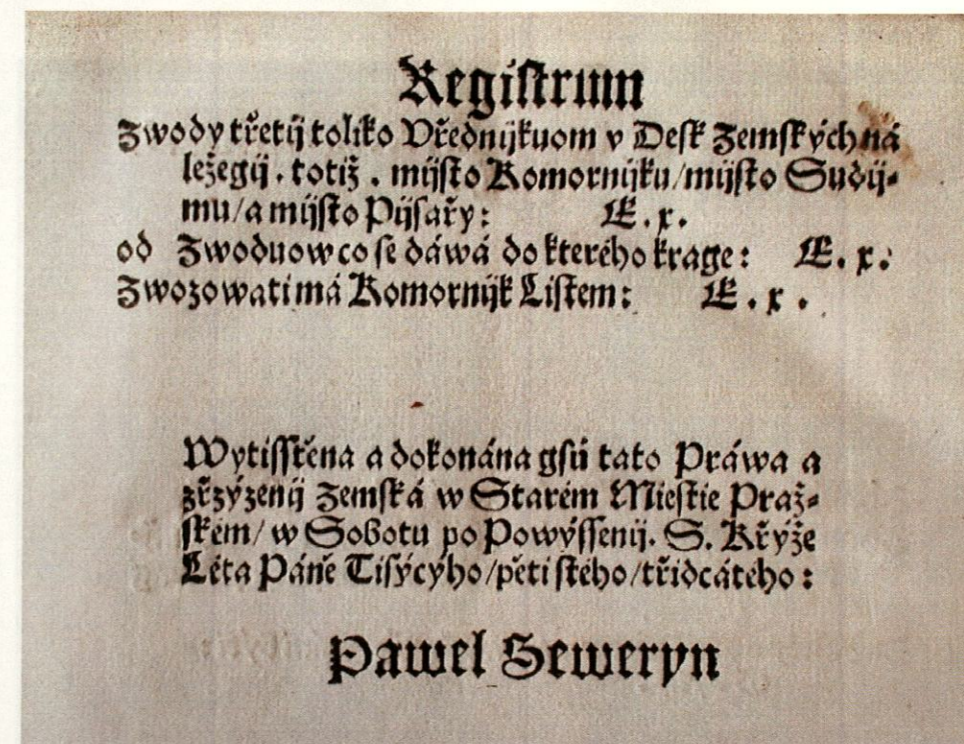 Registrum
Zwody třetij toliko Vřednijkuom v Desk Zemských ná
ležegij . totiž . mijsto Komornijku/mijsto Sudij-
mu/a mijsto Pijsařy: LE. x.
od Zwoduow co se dáwá do kterého krage: LE. x.
Zwozowati má Komornijk Listem: LE . x .
Wytisstěna a dokonána gsú tato Práwa a
zřzýzenij Zemská w Starém Miestie Praž-
ském/ w Sobotu po Powýssenij. S. Křýže
Léta Páně Tisýcýho/pětistého/třidcátého:
Pawel Seweryn